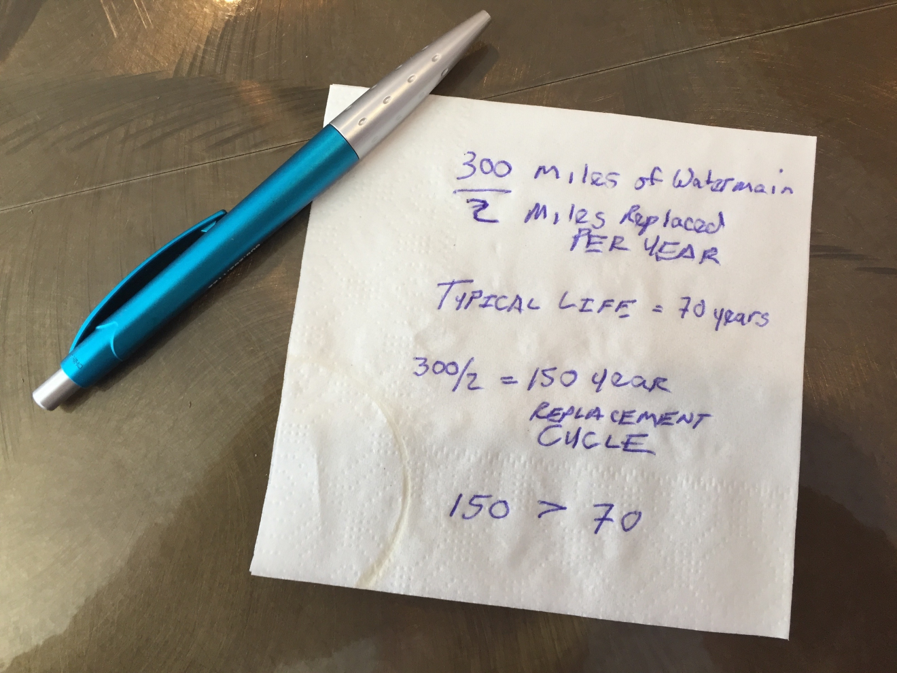 300 Miles of Watermain
2 Miles Replaced
PER YEAR
TYPICAL LIFE = 70 years
300/2 = 150 year
REPLACEMENT
CYCLE
150 > 70